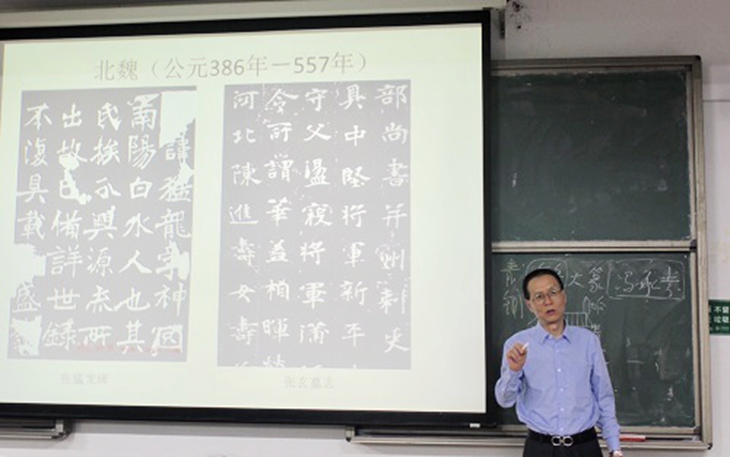 北魏（公元386年－557年）
諱猛龍字神囧
南陽白水人也其
氏族分興源流所
出故已備詳世錄
不復具載 盛
部尚書并州刺史
具中堅將軍新平
守父盪寇將軍蒲
令所謂華蓋相暉
河北陳進壽女壽
张猛龙碑
张玄墓志
大篆
冯承素